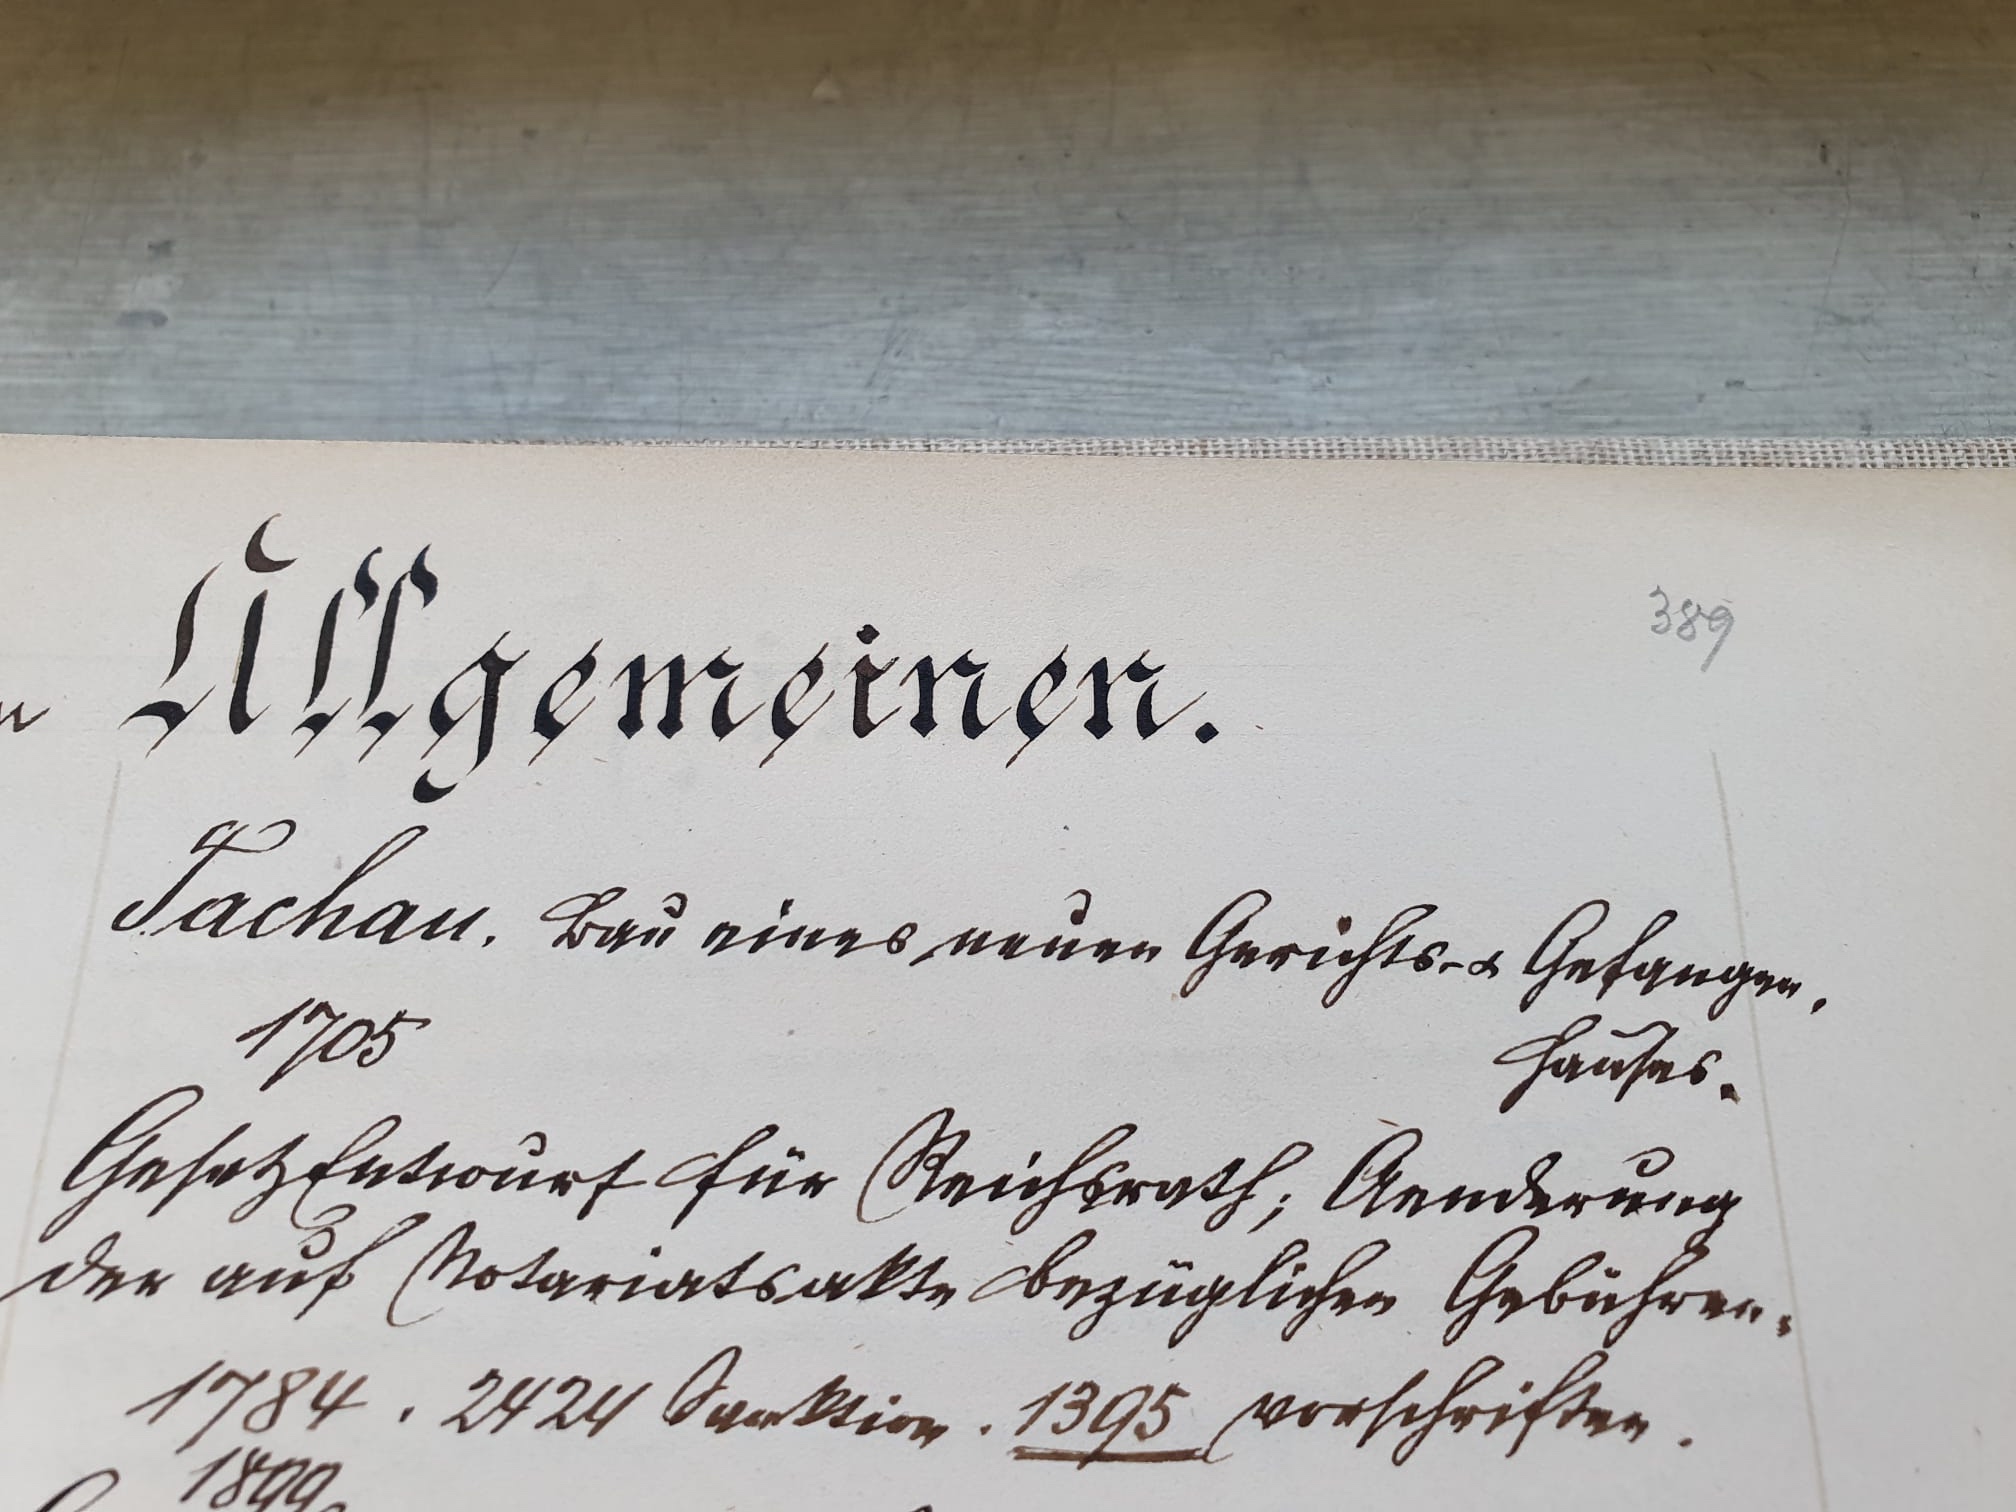 389
Allgemeinen.
Tachau. Bau eines neuen Gerichts- & Gefangen.
1705 hauses.
Gesetz Entwurf für Reichsrath; Aenderung
der auf Notariatsakte bezüglichen Gebühren.
1784. 2424 Sanktion. 1395 vorschriften.
1899